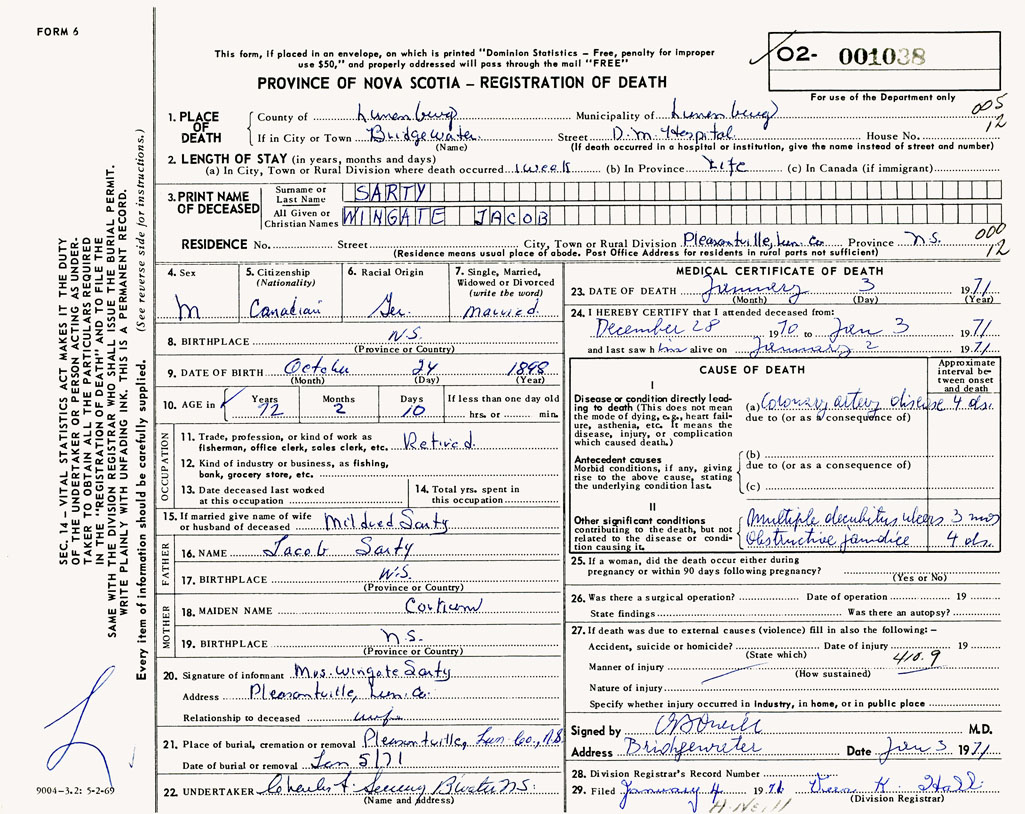 FORM 6
This form, if placed in an envelope, on which is printed "Dominion Statistics – Free, penalty for improper
use $50," and properly addressed will pass through the mail "FREE"
PROVINCE OF NOVA SCOTIA – REGISTRATION OF DEATH
O2- 001038
For use of the Department only
005
12
1. PLACE OF DEATH
County of Lunenburg Municipality of Lunenburg
If in City or Town Bridgewater Street D.M. Hospital House No.
(Name) (If death occurred in a hospital or institution, give the name instead of street and number)
2. LENGTH OF STAY (in years, months and days)
(a) In City, Town or Rural Division where death occurred 1 week (b) In Province Life (c) In Canada (if immigrant)
3. PRINT NAME OF DECEASED
Surname or Last Name SARTY
All Given or Christian Names WINGATE JACOB
RESIDENCE No. Street City, Town or Rural Division Pleasantville, Lun. Co. Province N.S.
000
12
(Residence means usual place of abode. Post Office Address for residents in rural parts not sufficient)
4. Sex
M
5. Citizenship
(Nationality)
Canadian
6. Racial Origin
Ger.
7. Single, Married,
Widowed or Divorced
(write the word)
Married.
8. BIRTHPLACE N.S.
(Province or Country)
9. DATE OF BIRTH October 24 1898
(Month) (Day) (Year)
10. AGE in Years 72 Months 2 Days 10 If less than one day old
hrs. or min.
OCCUPATION
11. Trade, profession, or kind of work as
fisherman, office clerk, sales clerk, etc. Retired.
12. Kind of industry or business, as fishing,
bank, grocery store, etc.
13. Date deceased last worked
at this occupation
14. Total yrs. spent in
this occupation
15. If married give name of wife
or husband of deceased Mildred Sarty
FATHER
16. NAME Jacob Sarty
17. BIRTHPLACE N.S.
(Province or Country)
MOTHER
18. MAIDEN NAME Corkum
19. BIRTHPLACE N.S.
(Province or Country)
20. Signature of informant Mrs. Wingate Sarty
Address Pleasantville, Lun. Co.
Relationship to deceased wife
21. Place of burial, cremation or removal Pleasantville, Lun. Co., N.S.
Date of burial or removal Jan 5/71
22. UNDERTAKER Charles A. B'water N.S.
(Name and address)
MEDICAL CERTIFICATE OF DEATH
23. DATE OF DEATH January 3 1971
(Month) (Day) (Year)
24. I HEREBY CERTIFY that I attended deceased from:
December 28 1970 to Jan 3 1971
and last saw him alive on January 2 1971.
CAUSE OF DEATH
Approximate
interval be-
tween onset
and death
I
Disease or condition directly lead-
ing to death (This does not mean
the mode of dying, e.g., heart fail-
ure, asthenia, etc. It means the
disease, injury, or complication
which caused death.)
(a) Coronary artery disease 4 ds.
due to (or as a consequence of)
Antecedent causes
Morbid conditions, if any, giving
rise to the above cause, stating
the underlying condition last.
(b)
due to (or as a consequence of)
(c)
II
Other significant conditions
contributing to the death, but not
related to the disease or condi-
tion causing it.
Multiple decubitus ulcers 3 mos
Obstructive jaundice 4 ds.
25. If a woman, did the death occur either during
pregnancy or within 90 days following pregnancy?
(Yes or No)
26. Was there a surgical operation? Date of operation 19
State findings Was there an autopsy?
27. If death was due to external causes (violence) fill in also the following: –
Accident, suicide or homicide? Date of injury 19
(State which) 410.9
Manner of injury
(How sustained)
Nature of injury
Specify whether injury occurred in industry, in home, or in public place
Signed by M.D.
Address Bridgewater Date Jan 3 1971
28. Division Registrar's Record Number
29. Filed January 4 1971 K. Hall
(Division Registrar)
SEC. 14 – VITAL STATISTICS ACT MAKES IT THE DUTY
OF THE UNDERTAKER OR PERSON ACTING AS UNDER-
TAKER TO OBTAIN ALL THE PARTICULARS REQUIRED
IN THE "REGISTRATION OF DEATH" AND TO FILE THE
SAME WITH THE DIVISION REGISTRAR WHO SHALL ISSUE THE BURIAL PERMIT.
WRITE PLAINLY WITH UNFADING INK. THIS IS A PERMANENT RECORD.
Every item of information should be carefully supplied. (See reverse side for instructions.)
9004-3.2: 5-2-69